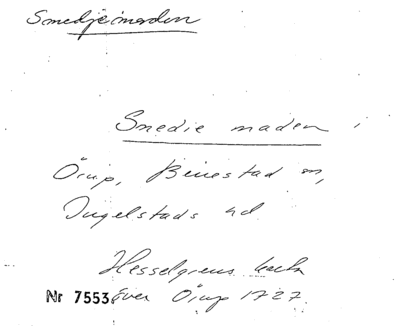 Smedjemaden
Smedie maden
Örup, Benestad sn,
Ingelstads hd
Hesselgrens karta
Nr 7553 över Örup 1727.